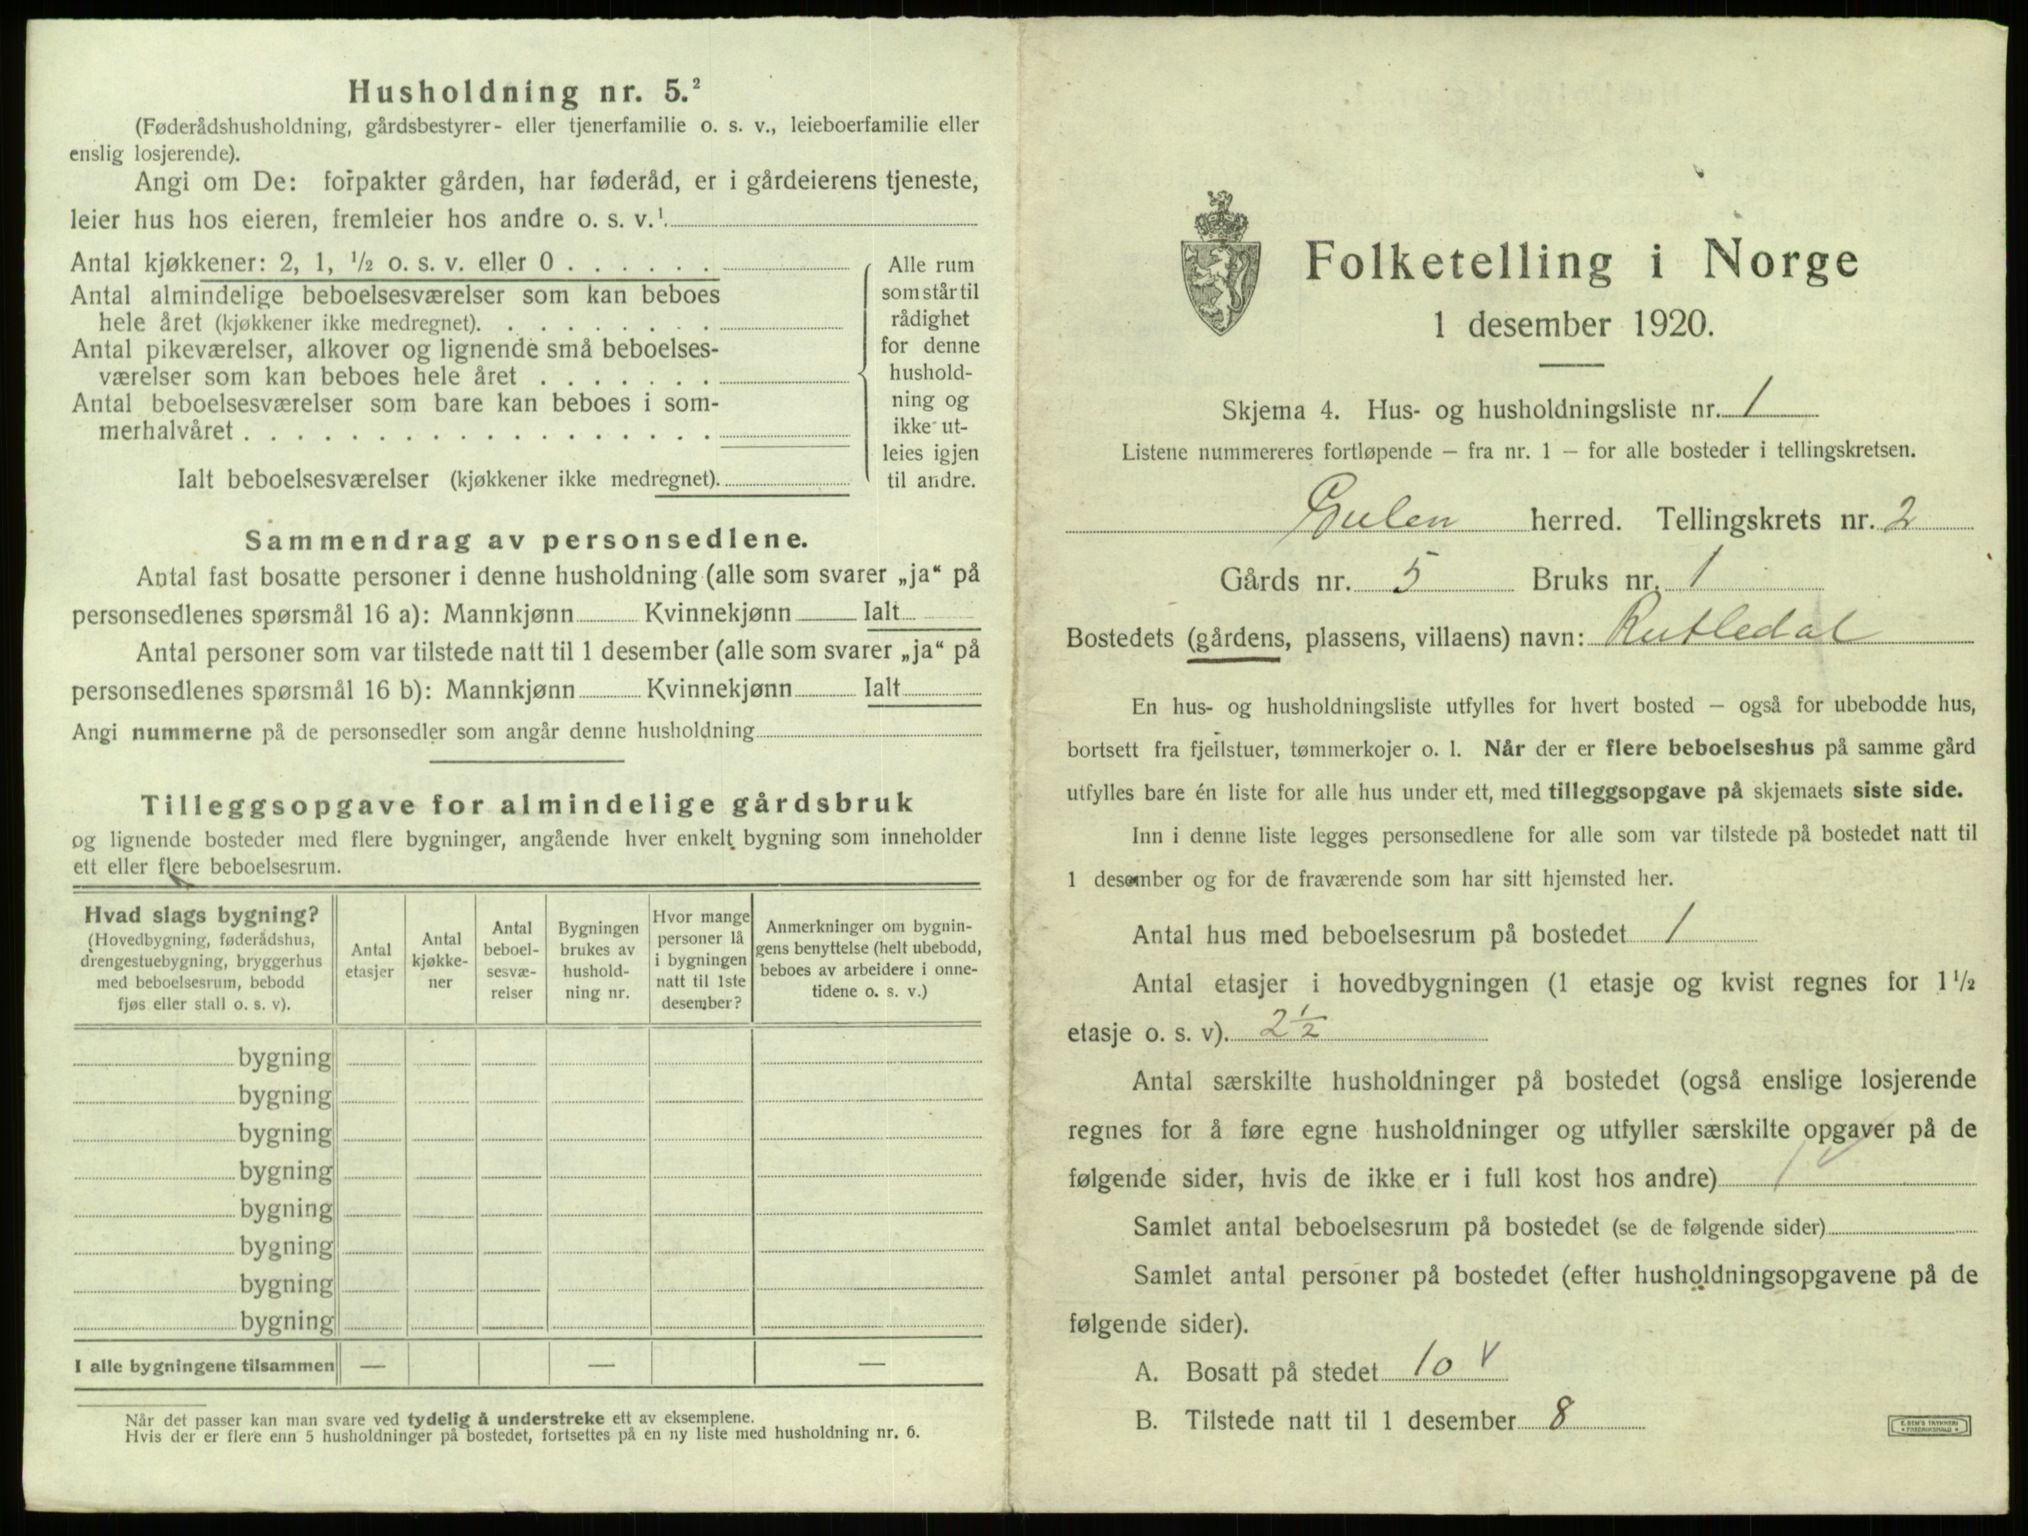 Husholdning nr. 5.²
(Føderådshusholdning, gårdsbestyrer- eller tjenerfamilie o. s. v., leieboerfamilie eller
enslig losjerende).
Angi om De: forpakter gården, har føderåd, er i gårdeierens tjeneste,
leier hus hos eieren, fremleier hos andre o. s. v.¹
Antal kjøkkener: 2, 1, ½ o. s. v. eller 0 . . . . . .
Antal almindelige beboelsesværelser som kan beboes
hele året (kjøkkener ikke medregnet). . . . . . . . .
Antal pikeværelser, alkover og lignende små beboelses-
værelser som kan beboes hele året . . . . . . .
Antal beboelsesværelser som bare kan beboes i som-
merhalvåret . . . . . . . . . . . . . . . . . .
Ialt beboelsesværelser (kjøkkener ikke medregnet).
Alle rum
som står til
rådighet
for denne
hushold-
ning og
ikke ut-
leies igjen
til andre.
Sammendrag av personsedlene.
Antal fast bosatte personer i denne husholdning (alle som svarer „ja“ på
personsedlenes spørsmål 16 a): Mannkjønn Kvinnekjønn Ialt
Antal personer som var tilstede natt til 1 desember (alle som svarer „ja“ på
personsedlenes spørsmål 16 b): Mannkjønn Kvinnekjønn Ialt
Angi nummerne på de personsedler som angår denne husholdning
Tilleggsopgave for almindelige gårdsbruk
og lignende bosteder med flere bygninger, angående hver enkelt bygning som inneholder
ett eller flere beboelsesrum.
Hvad slags bygning?
(Hovedbygning, føderådshus,
drengestuebygning, bryggerhus
med beboelsesrum, bebodd
fjøs eller stall o. s. v).
Antal
etasjer
Antal
kjøkke-
ner
Antal
beboel-
sesvæ-
relser
Bygningen
brukes av
hushold-
ning nr.
Hvor mange
personer lå
i bygningen
natt til 1ste
desember?
Anmerkninger om bygnin-
gens benyttelse (helt ubebodd,
beboes av arbeidere i onne-
tidene o. s. v.)
bygning
bygning
bygning
bygning
bygning
bygning
bygning
bygning
I alle bygningene tilsammen — — —
Når det passer kan man svare ved tydelig å understreke ett av eksemplene.
Hvis der er flere enn 5 husholdninger på bostedet, fortsettes på en ny liste med husholdning nr. 6.
Folketelling i Norge
1 desember 1920.
Skjema 4. Hus- og husholdningsliste nr. 1
Listene nummereres fortløpende – fra nr. 1 – for alle bosteder i tellingskretsen.
Gulen herred. Tellingskrets nr. 2
Gårds nr. 5 Bruks nr. 1
Bostedets (gårdens, plassens, villaens) navn: Rutledal
En hus- og husholdningsliste utfylles for hvert bosted – også for ubebodde hus,
bortsett fra fjellstuer, tømmerkojer o. l. Når der er flere beboelseshus på samme gård
utfylles bare én liste for alle hus under ett, med tilleggsopgave på skjemaets siste side.
Inn i denne liste legges personsedlene for alle som var tilstede på bostedet natt til
1 desember og for de fraværende som har sitt hjemsted her.
Antal hus med beboelsesrum på bostedet 1
Antal etasjer i hovedbygningen (1 etasje og kvist regnes for 1½
etasje o. s. v). 2½
Antal særskilte husholdninger på bostedet (også enslige losjerende
regnes for å føre egne husholdninger og utfyller særskilte opgaver på de
følgende sider, hvis de ikke er i full kost hos andre) 1
Samlet antal beboelsesrum på bostedet (se de følgende sider)
Samlet antal personer på bostedet (efter husholdningsopgavene på de
følgende sider).
A. Bosatt på stedet 10 v
B. Tilstede natt til 1 desember 8